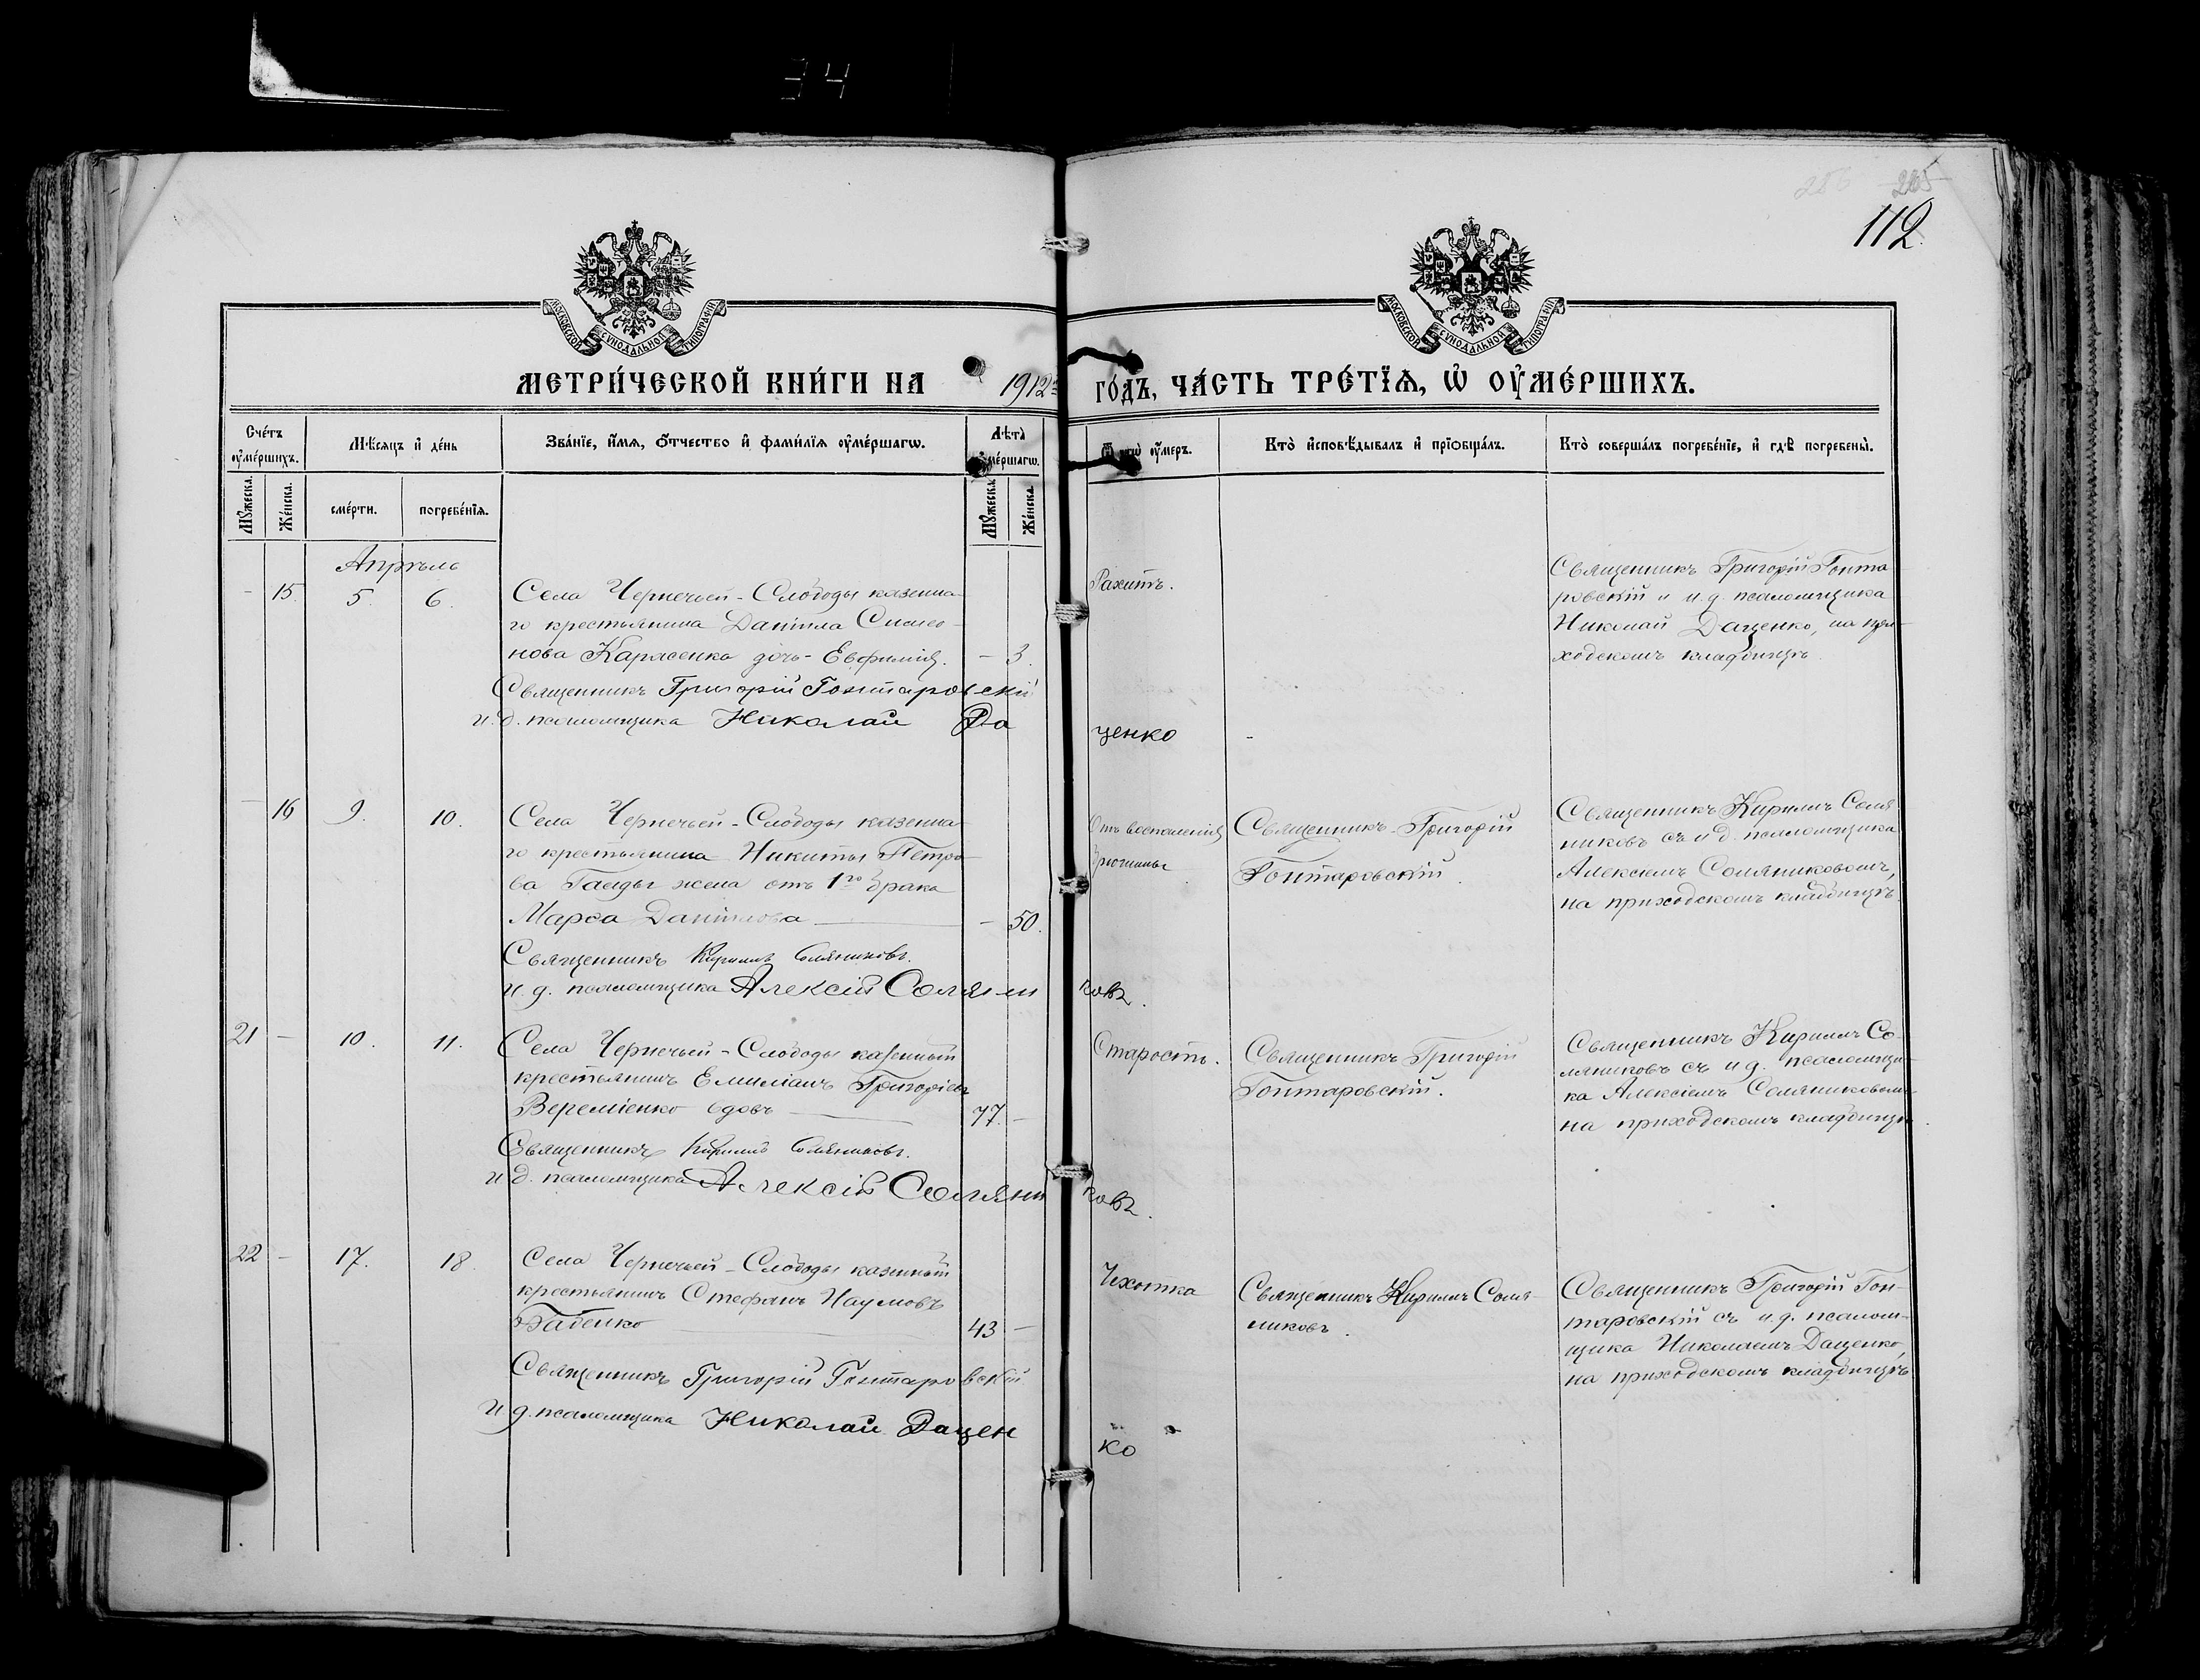 34
205
112.
МОСКОВСКОЙ СѴНОДАЛЬНОЙ ТИПОГРАФІИ
МОСКОВСКОЙ СѴНОДАЛЬНОЙ ТИПОГРАФІИ
МЕТРИ́ЧЕСКОЙ КНИ́ГИ НА 1912й ГО́ДЪ, ЧА́СТЬ ТРЕ́ТЇѦ, Ѡ ОУ҆МЕ́РШИХЪ.
Сче́тъ оу҆ме́ршихъ.
Мѣ́сѧцъ и҆ де́нь
Зва́нїе, и҆́мѧ, ѻ҆́тчество и҆ фами́лїѧ оу҆ме́ршагѡ.
Лѣ́та оу҆ме́ршагѡ.
Ѿ чегѡ̀ оу҆́меръ.
Кто̀ и҆сповѣ́дывалъ и҆ прїѡбща́лъ.
Кто̀ соверша́лъ погребе́нїе, и҆ гдѣ̀ погребены̀.
Мꙋ́жеска.
Же́нска.
сме́рти.
погребе́нїѧ.
Мꙋ́жеска
Же́нска
Апрѣль
- 15. 5. 6.
Села Чернечьей-Слободы казенна
го крестьянина Даніила Симео-
нова Карасенка дочь - Евфимія. - 3.
Священникъ Григорій Гонтаровскій
и. д. псаломщика Николай Даценко
Рахитъ.
-
Священникъ Григорій Гонта
ровскій и и.д. псаломщика
Николай Даценко, на при-
ходскомъ кладбищѣ
- 16 9. 10.
Села Чернечьей-Слободы казенна
го крестьянина Никиты Петро-
ва Гайды жена отъ 1го брака
Марѳа Даніилова - 50.
Священникъ Кириллъ Соляниковъ.
и. д. псаломщика Алексій Соляниковъ.
Отъ воспаленія
брюшины
Священникъ Григорій
Гонтаровскій.
Священникъ Кириллъ Соля
никовъ съ и д. псаломщика
Алексіемъ Соляниковомъ,
на приходскомъ кладбищѣ.
21 - 10. 11.
Села Чернечьей-Слободы казенный
крестьянинъ Емиліанъ Григоріевъ
Вереміенко вдовъ 77. -
Священникъ Кириллъ Соляниковъ.
и д. псаломщика Алексій Соляниковъ.
Старость.
Священникъ Григорій
Гонтаровскій.
Священникъ Кириллъ Со
ляниковъ съ и д. псаломщи-
ка Алексіемъ Соляниковомъ
на приходскомъ кладбищѣ.
22 - 17. 18.
Села Чернечьей-Слободы казенный
крестьянинъ Стефанъ Наумовъ
Бабенко 43 -
Священникъ Григорій Гонтаровскій
и д. псаломщика Николай Даценко
Чахотка
Священникъ Кириллъ Соля-
никовъ.
Священникъ Григорій Гон-
таровскій съ и.д. псалом-
щика Николаемъ Даценко,
на приходскомъ кладбищѣ